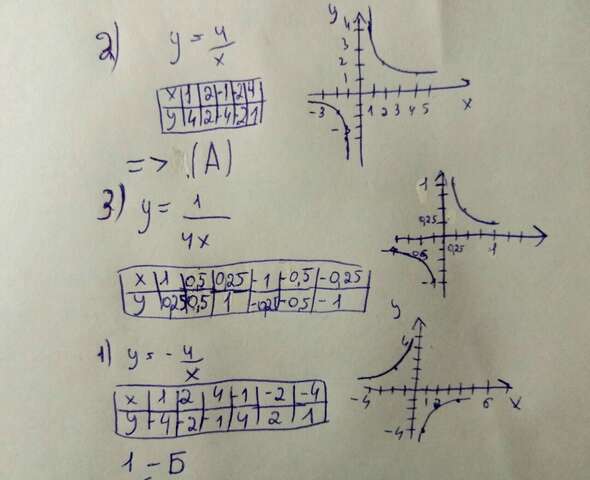 2) y = 4/x
x | 1 | 2 | -1 | -2 | 4
y | 4 | 2 | -4 | -2 | 1
y
4
3
2
1
-3 1 2 3 4 5 x
=> (A)
3) y = 1/4x
x | 1 | 0,5 | 0,25 | -1 | -0,5 | -0,25
y | 0,25 | 0,5 | 1 | -0,25 | -0,5 | -1
1
0,25
0,25 1
-1
1) y = - 4/x
x | 1 | 2 | 4 | -1 | -2 | -4
y | -4 | -2 | -1 | 4 | 2 | 1
y
4
-4 1 2 6 x
-4
1 - Б